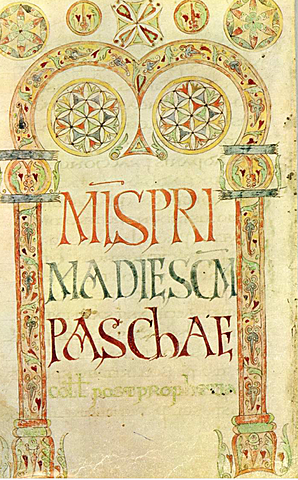 MĪSPRI
MADIESCM̄
PASChAE
coll postprophetia